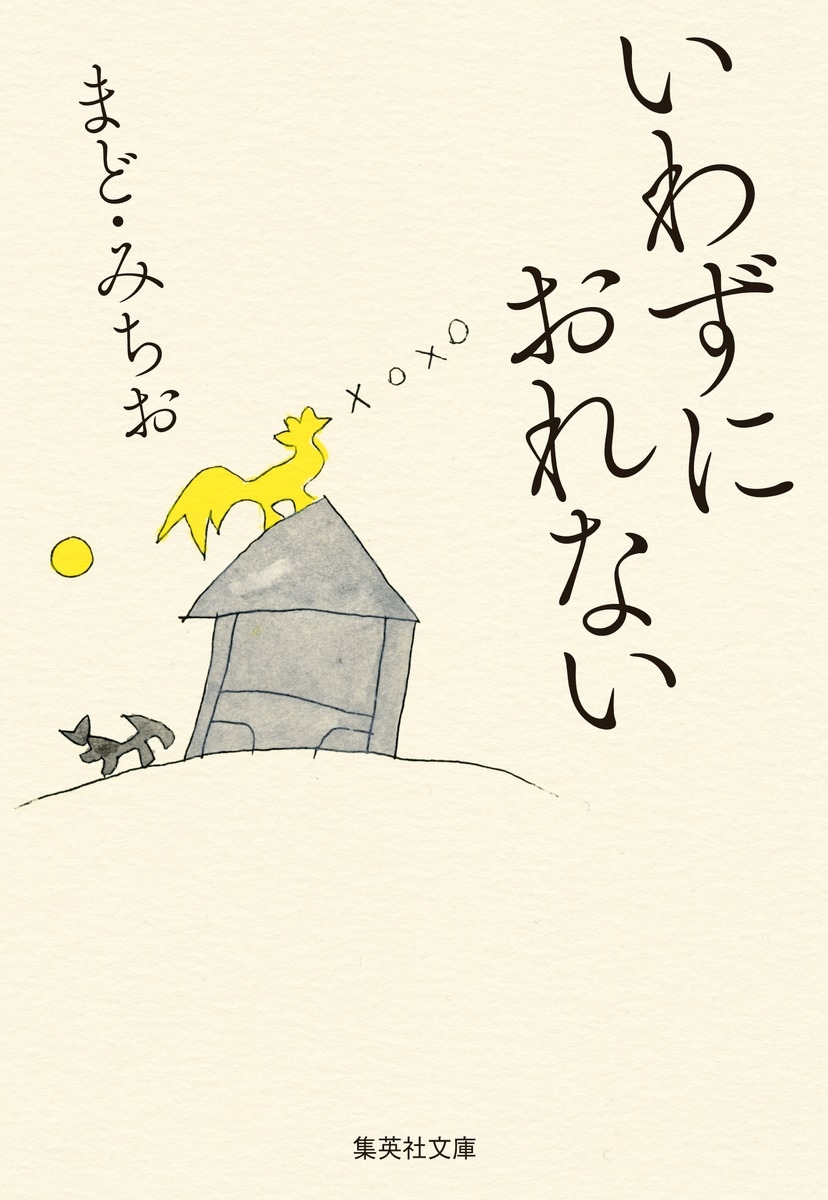 いわずに
おれない
まど・みちお
x o x o
集英社文庫